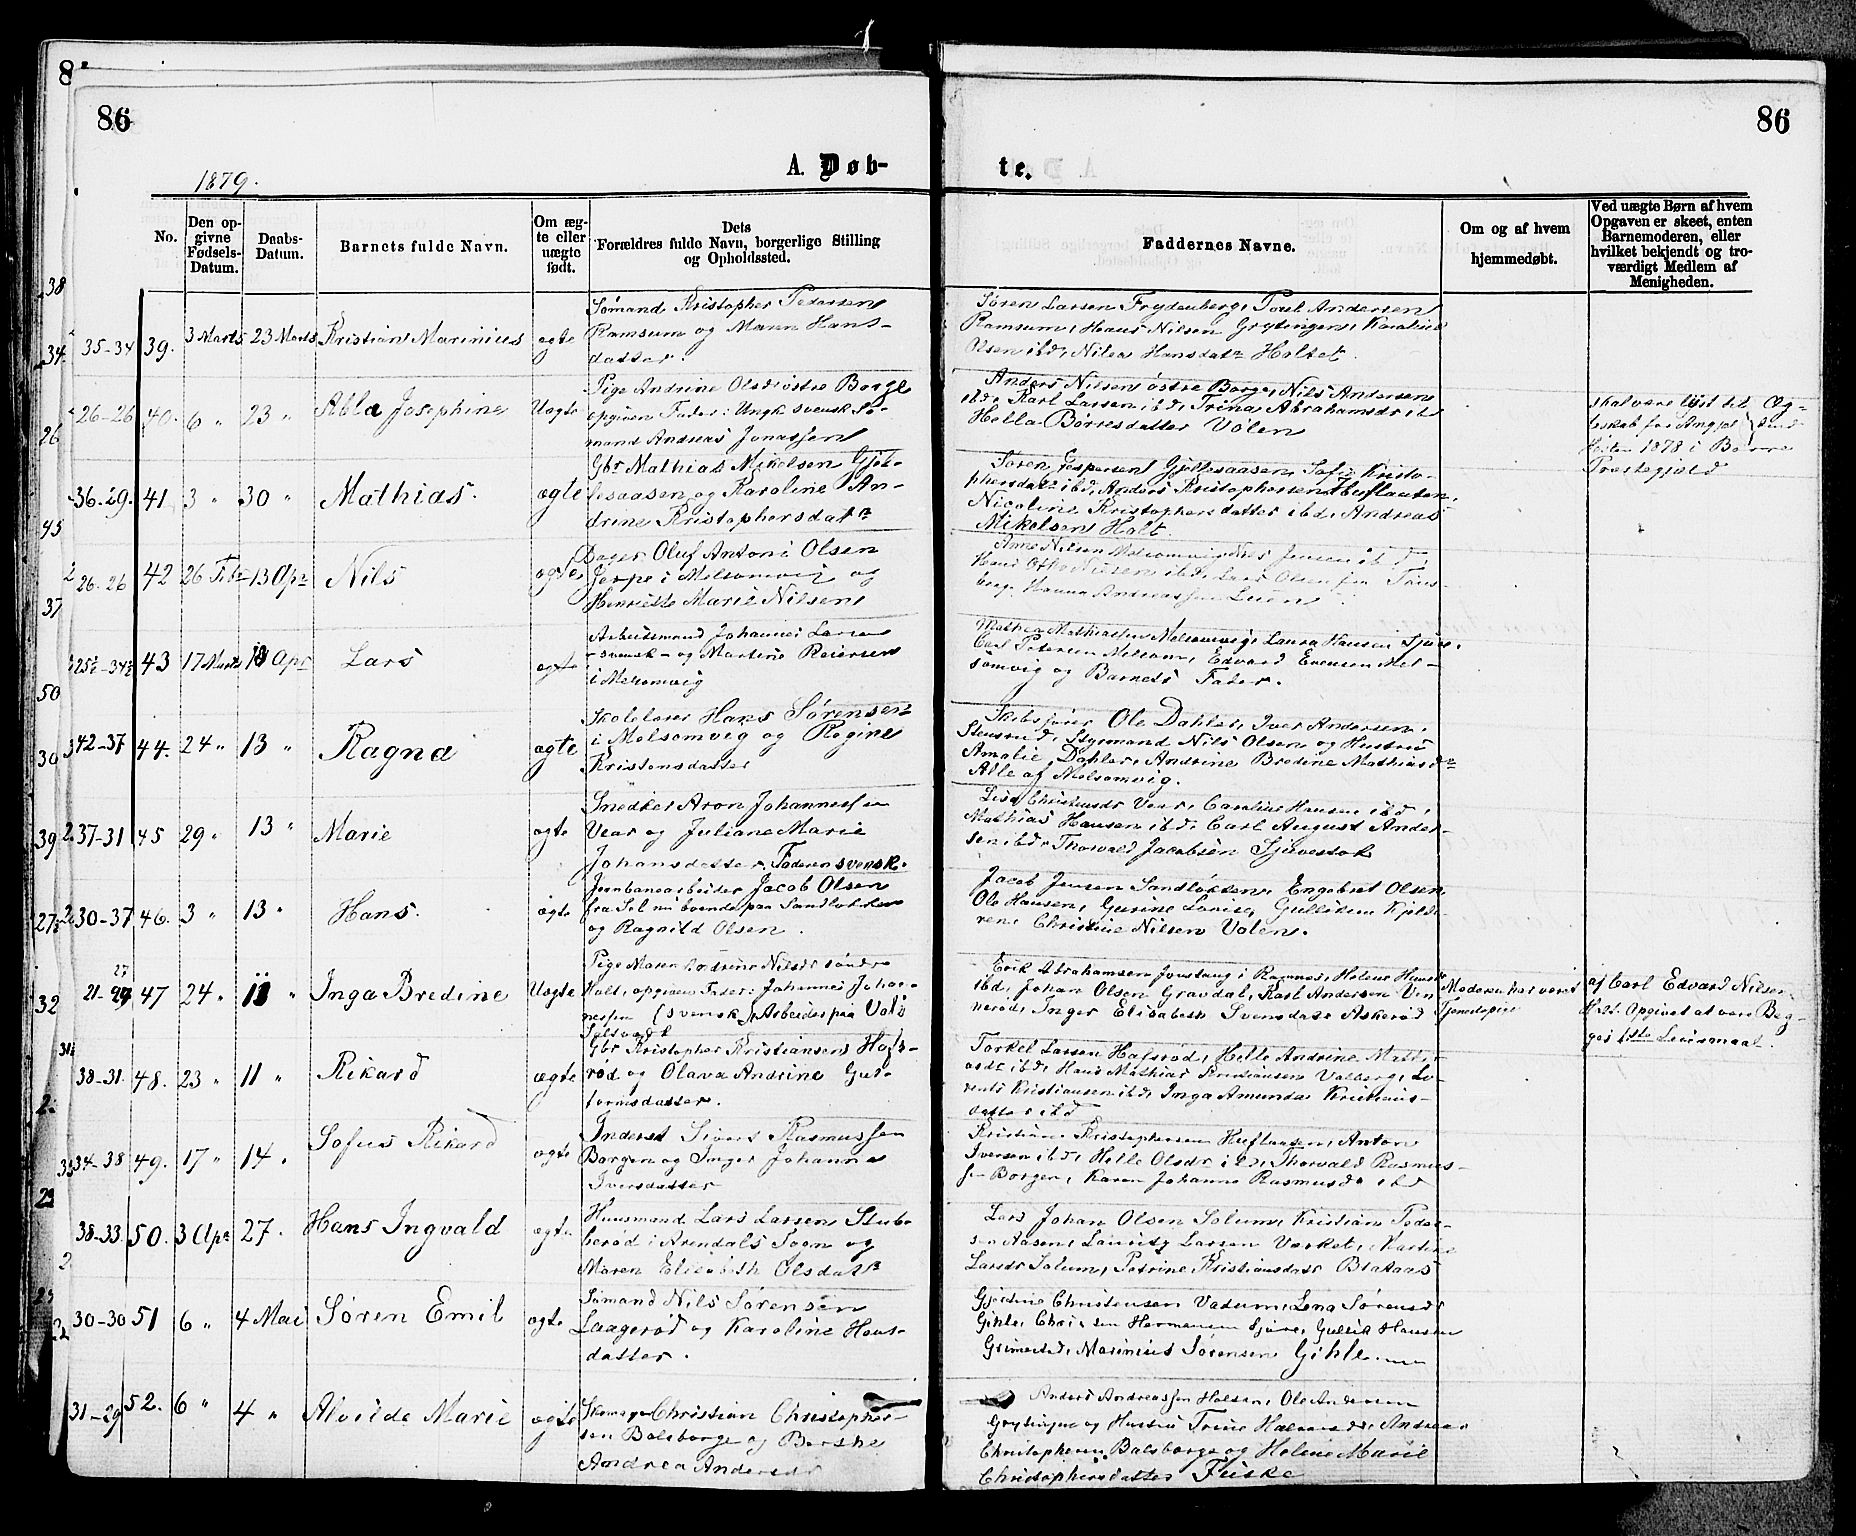 8
86
86
A. Døb-
te.
1879.
No.
Den op-
givne
Fødsels-
Datum.
Daabs-
Datum.
Barnets fulde Navn.
Om æg-
te eller
uægte
født.
Dets
Forældres fulde Navn, borgerlige Stilling
og Opholdssted.
Faddernes Navne.
Om og af hvem
hjemmedøbt.
Ved uægte Børn af hvem
Opgaven er skeet, enten
Barnemoderen, eller
hvilket bekjendt og tro-
værdigt Medlem af
Menigheden.
35-34 39. 3 Marts 23 Marts Kristian Marinius ægte
Sømand Kristopher Pedersen
Ramsum og Maren Hans-
datter.
Søren Larsen Frydenberg, Poul Andersen
Ramsum, Hans Nilsen Grytingen, Karoline
Olsen ibd, Nilea Hansdatr Holtet.
26-26 40. 6 " 23 " Abla Josephine Uægte
Pige Andrine Olsdr østre Borge
opgiven Fader: Ungk svensk Sø-
mand Andreas Jonassen
Anders Nilsen østre Borge, Nils Andersen
ibd, Karl Larsen ibd, Trina Abrahamsdr ibd
Hella Børresdatter Volen
skal være lyst til Æg-
teskab
1878 i Borre
Præstegjeld
36-29. 41 3 " 30 " Mathias. ægte
Gbr Mathias Mikelsen Gjel-
lesaasen og Karoline An-
drine Kristophersdatr
Søren Jespersen Gjellesaasen, Sofie Kristo-
phersdatr ibd, Anders Kristophersen Huflaaten,
Nicoline Kristophersdatter ibd, Andreas
Mikelsen Holt.
26-26 42 26 Febr 13 Apr Nils ægte
Oluf Anton Olsen
Jerpe i Melsomvig og
Henriette Marie Nilsen
Anne Nilsen Melsomvig, Nils Jensen ibd,
Hans Otto Nilsen ibd, Lars Olsen fra Tøns-
berg, Hanna Andreassen Lüen
43 17 Marts 13 Apr Lars ægte
Arbeidsmand Johannes Larsen
- svensk - og Martine Reiersen
i Melsomvig
Mathea Mathiassen Melsomvig, Laura Hansen Sjüve,
Carl Petersen Melsom, Edvard Evensen Mel-
somvig og Barnets Fader.
42-37 44. 24 " 13 " Ragna ægte
Skolelærer Hans Sørensen
i Melsomvig og Regine
Kristensdatter
Skibsfører Ole Dahler, Iver Andersen
Stensrud, Styrmand Nils Olsen og Hustru
Amalie Dahler, Andrine Bredine Mathiasdr
Alle af Melsomvig.
37-31 45 29 " 13 " Marie ægte
Snedker Aron Johannessen
Vear og Juliane Marie
Johansdatter, Faderen svensk.
Lisa Christensdr Vear, Caroline Hansen ibd,
Mathias Hansen ibd, Carl August Ander-
sen ibd, Thorvald Jacobsen Sjuvestok
30-37 46. 3 " 13 " Hans. ægte
Jernbanearbeider Jacob Olsen
fra Sel nu boende paa Sandløkken
og Ragnild Olsen.
Jacob Jensen Sandløkken, Engebret Olsen
Ole Hansen, Gurine Lovise
Christine Nilsen Volen.
27
21- 47 24 " 11 " Inga Bredine Uægte
Pige Maren Andrine Nilsdr søndre
Holt, opgiven Fader: Johannes Johan-
nessen (svensk) Arbeider paa Valø
Saltværk
Erik Abrahamsen Jonstang i Ramnes, Helene Hansdr
ibd, Johan Olsen Gravdal, Karl Andersen Vin-
nerød, Inger Elisabeth Svensdatr Askerød
Moderen har været
Tjenestepige
af Carl Edvard Nilsen
Holt. Opgivet at være Beg-
ges 1ste Leiermaal.
38-31. 48. 23 " 11 " Rikard ægte
Gbr Kristopher Kristiansen Hafs-
rød og Olava Andrine Gut-
tormsdatter.
Torkel Larsen Hafsrød, Helle Andrine
ibd, Hans Mathias Kristiansen Valberg, Lo-
rents Kristiansen ibd, Inga Amunda Kristians-
datter ibd
34-38 49. 17 " 14 " Sofus Rikard ægte
Inderst Sivert Rasmussen
Borgen og Inger Johanne
Iversdatter
Kristian Kristophersen Huflaaten, Anton
Iversen ibd, Helle Olsdr ibd, Thorvald Rasmus-
sen Borgen, Karen Johanne Rasmusdr ibd
38-33. 50. 3 Apr 27. Hans Ingvald ægte
Huusmand Lars Larsen Stub-
berød i Arendals Sogn og
Maren Elisabeth Olsdatr
Lars Johan Olsen Solum, Kristian Peder-
sen Aasen, Lauritz Larsen Verket, Martine
Larsdr Solum, Petrine Kristiansdatr Brataas
30-30 51 6 " 4 Mai Søren Emil ægte
Sømand Nils Sørensen
Laagerød og Karoline Hans-
datter.
Gjerdine Christensen Vadum, Lena Sørensdr
Gihle, Hermansen Sjüve, Gullik Hansen
Grimestad, Marinius Sørensen Gihle
31-29 52. 6 " 4 " Alvilde Marie ægte
Christian Christopher-
sen Bålsborge og Berthe
Andrea Andersdr
Anders Andreassen Holsen, Ole Andersen
Grytingen og Hustru Trine Halvorsdr, Andreas
Christophersen Balsborge og Helene Marie
Christophersdatter Fuske